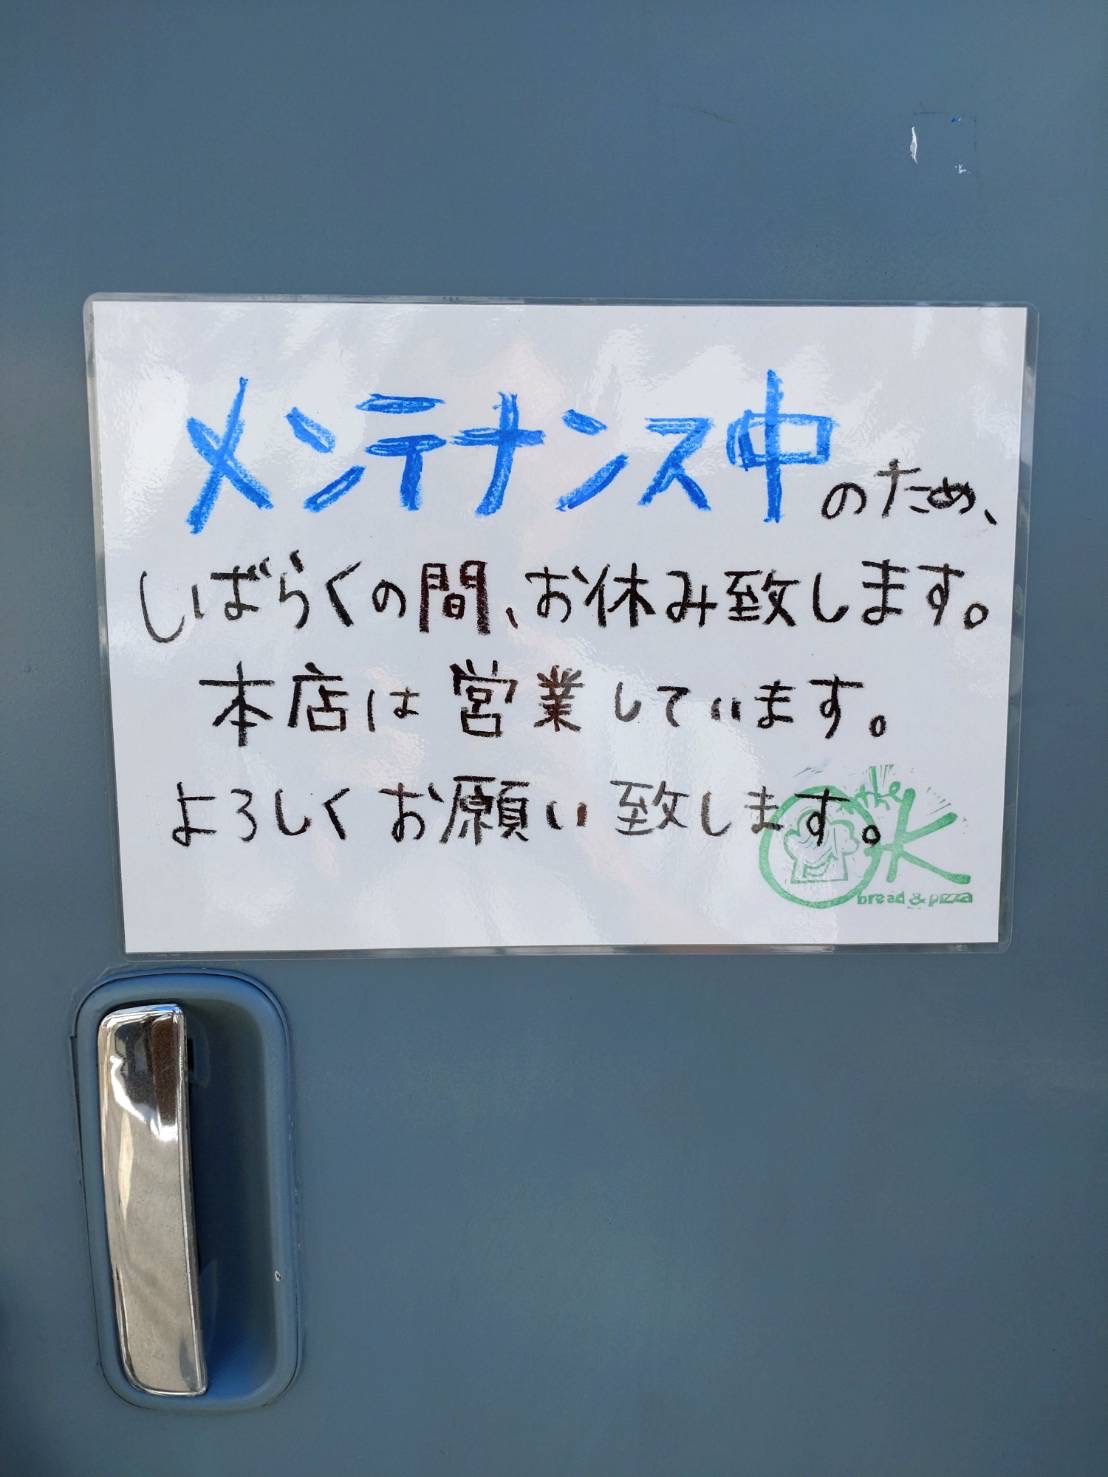 メンテナンス中のため、
しばらくの間、お休み致します。
本店は営業しています。
よろしくお願い致します。
the OK
bread & pizza